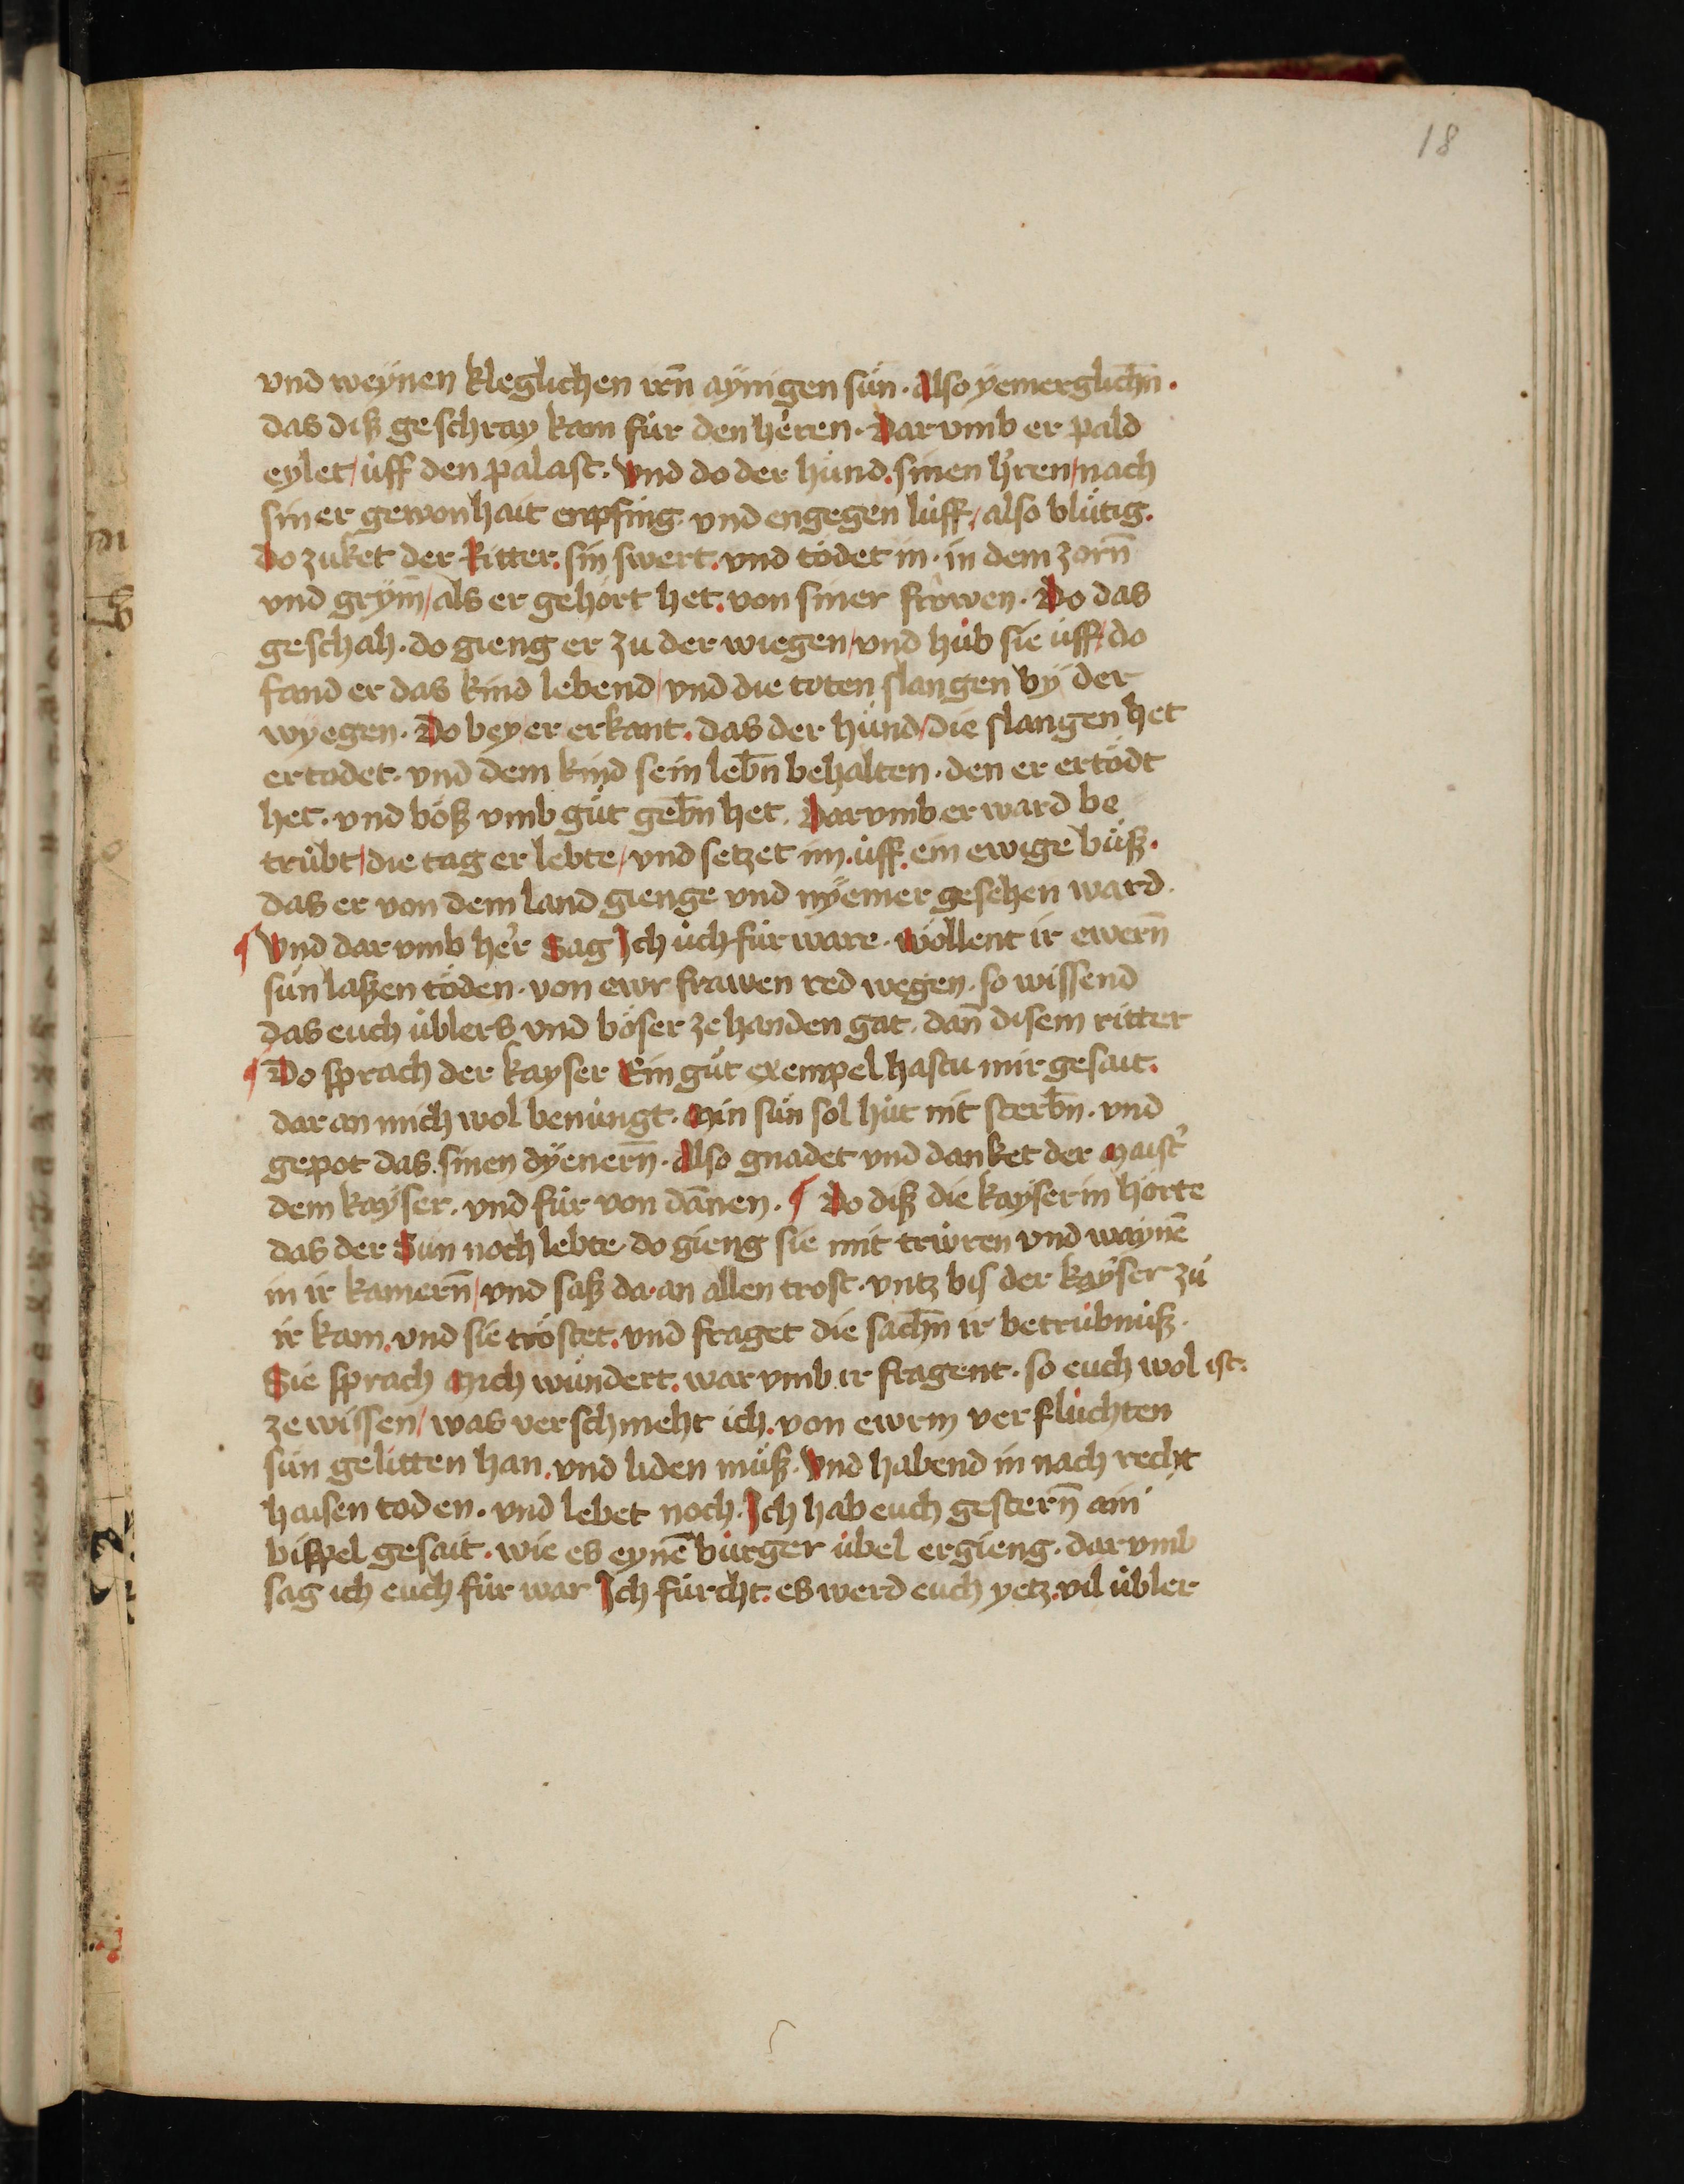 18
vnd weÿnen kleglichen irn̄ aÿnigen sůn · Also ÿemerglich̄n ·
das diß geschray kam fůr den he᷑ren · Dar vmb er pald
eylet / ůff den palast · Vnd do der hůnd . sinen h᷑ren / nach
siner gewonhait enpfing vnd engegen lůff / also blůtig .
Do zuket der Ritter . sin swert . vnd tödet in · in dem zorn̄
vnd grÿm̄ / als er gehört het . von siner frowen · Do das
geschah · do gieng er zu der wiegen / vnd hůb sie ůff / do
fand er das kind lebend / vnd die toten slangen bÿ der
wÿegen · Do bey er erkant . das der hůnd / die slangen het
ertodet · vnd dem kind sein leb̄n behalten · den er ertödt
het · vnd böß vmb gůt geb̄n het . Dar vmb er ward be
trůbt / die tag er lebte / vnd setzet im . ůff . ein ewige bůß .
das er von dem land gienge vnd nÿemer gesehen ward .
¶ Vnd dar vmb he᷑r Sag Ich ůch fůr ware · wöllent ir ewern̄
sůn laßen töden · von ewr frawen red wegen · so wissend
das euch ůblers vnd böser ze handen gat · dan̄ disem ritter
¶ Do sprach der kayser Ein gůt exempel hastu mir gesait .
dar an mich wol benůngt · Min sůn sol hůt nit sterb̄n · vnd
gepot das . sinen dÿenern̄ · Also gnadet vnd danket der Maist᷑
dem kaÿser . vnd fůr von dan̄en . ¶ Do diß die kaÿserin horte
das der Sůn noch lebte do gieng sie mit trẘren vnd waynē
in ir kamern̄ / vnd saß da · an allen trost · vntz bis der kaÿser zů
ir kam . vnd sie tröstet . vnd fraget die sach̄n ir betrůbnůß .
Sie sprach Mich wůndert . war vmb ir fragent · so euch wol ist .
ze wissen / was verschmeht ich . von ewrm verflůchten
sůn gelitten han . vnd liden můß . Vnd habend in nach recht
haisen toden · vnd lebet noch . Ich hab euch gestern̄ ain
bispel gesait . wie es eynē bůrger ůbel ergieng · dar vmb
sag ich euch fůr war Ich fůrcht . es werd euch yetz . vil ůbler